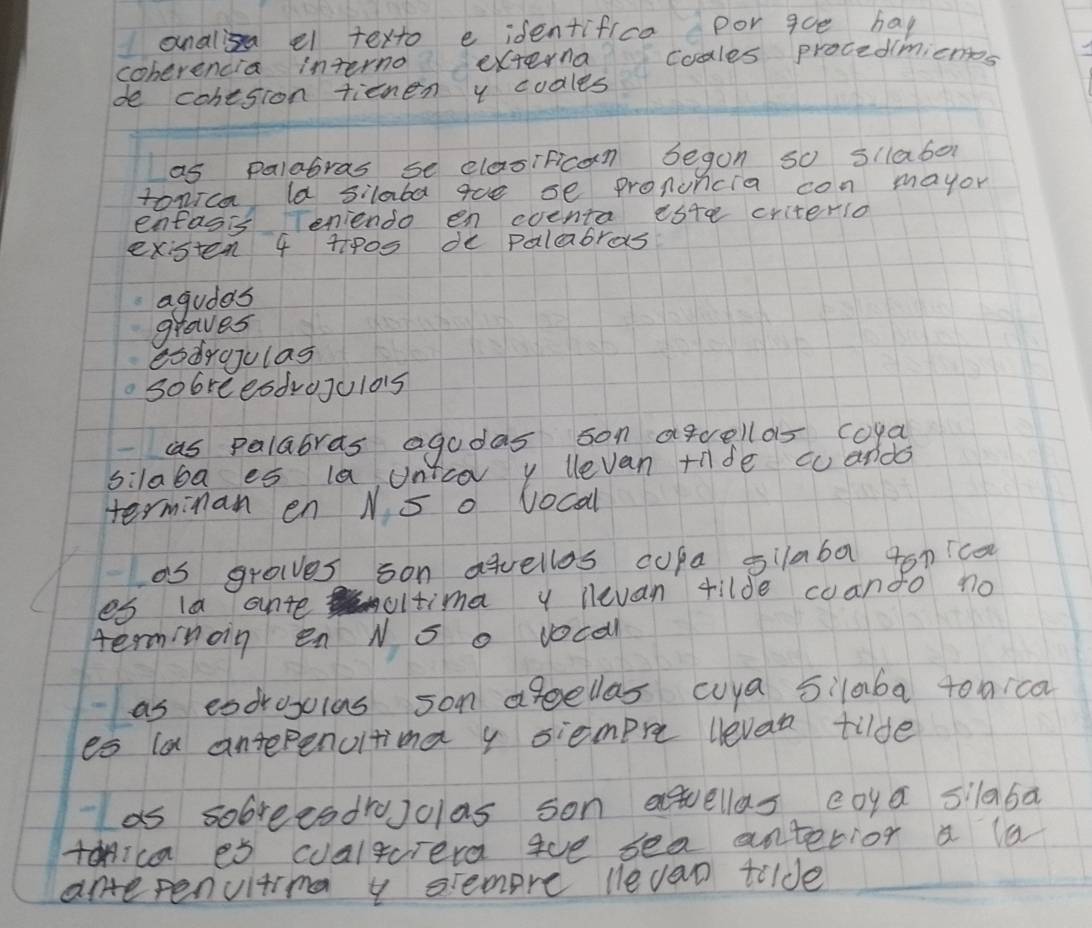 analisa el texto e identifica por que hay
coherencia interno externa cuales procedimientos
de cohesion tienen y cuales
Las palabras se clasifican segun su silaba
tonica, la silaba que se pronuncia con mayor
enfasis Teniendo en cuenta este criterio
existen 4 tipos de palabras:
• agudas
• graves
• esdrujulas
• sobreesdrujulas
- Las palabras agudas son aquellas cuya
silaba es la unica y llevan tilde cuando
terminan en N, S o Vocal
- Las graves son aquellas cuya silaba tonica
es la ante ultima y llevan tilde cuando no
terminan en N, S o vocal
- Las esdrujulas son aquellas cuya silaba tonica
es la antepenultima y siempre llevan tilde
- Las sobreesdrujulas son aquellas cuya silaba
tonica es cualquiera que sea anterior a la
antepenultima y siempre llevan tilde